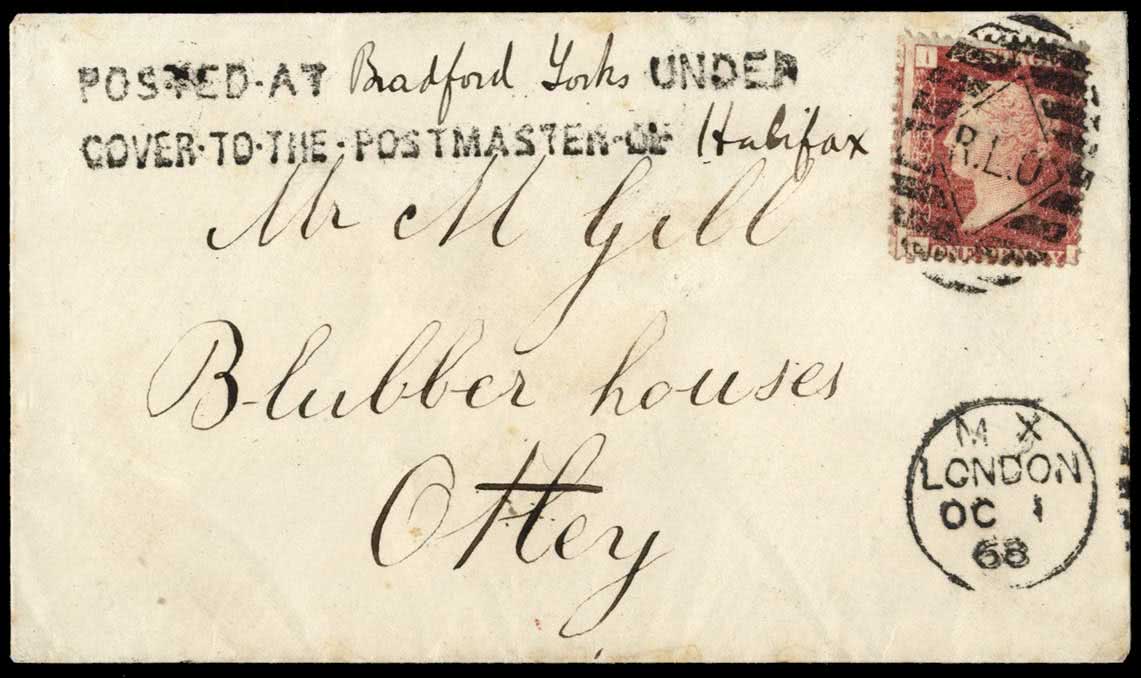 POSTED·AT Bradford Yorks UNDER
COVER·TO·THE·POSTMASTER·OF Halifax
Mr M Gill
Blubber houses
Otley
R.L.O
ONE PENNY
M X
LONDON
OC 1
68